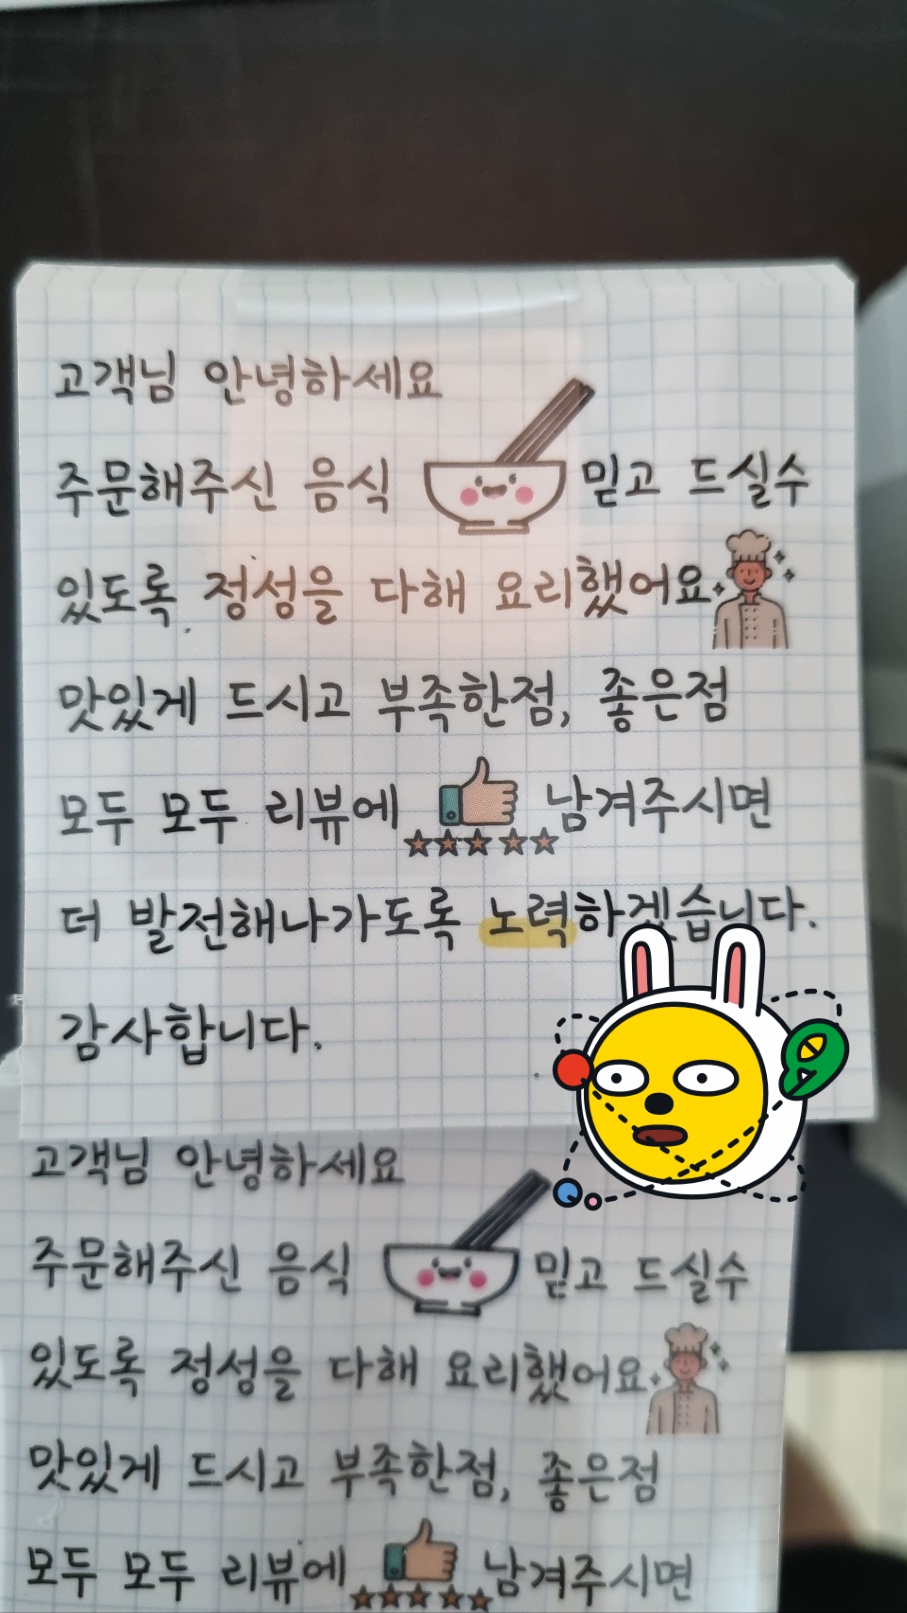 고객님 안녕하세요
주문해주신 음식 믿고 드실수
있도록 정성을 다해 요리했어요
맛있게 드시고 부족한점, 좋은점
모두 모두 리뷰에 남겨주시면
더 발전해나가도록 노력하겠습니다.
감사합니다.
고객님 안녕하세요
주문해주신 음식 믿고 드실수
있도록 정성을 다해 요리했어요
맛있게 드시고 부족한점, 좋은점
모두 모두 리뷰에 남겨주시면